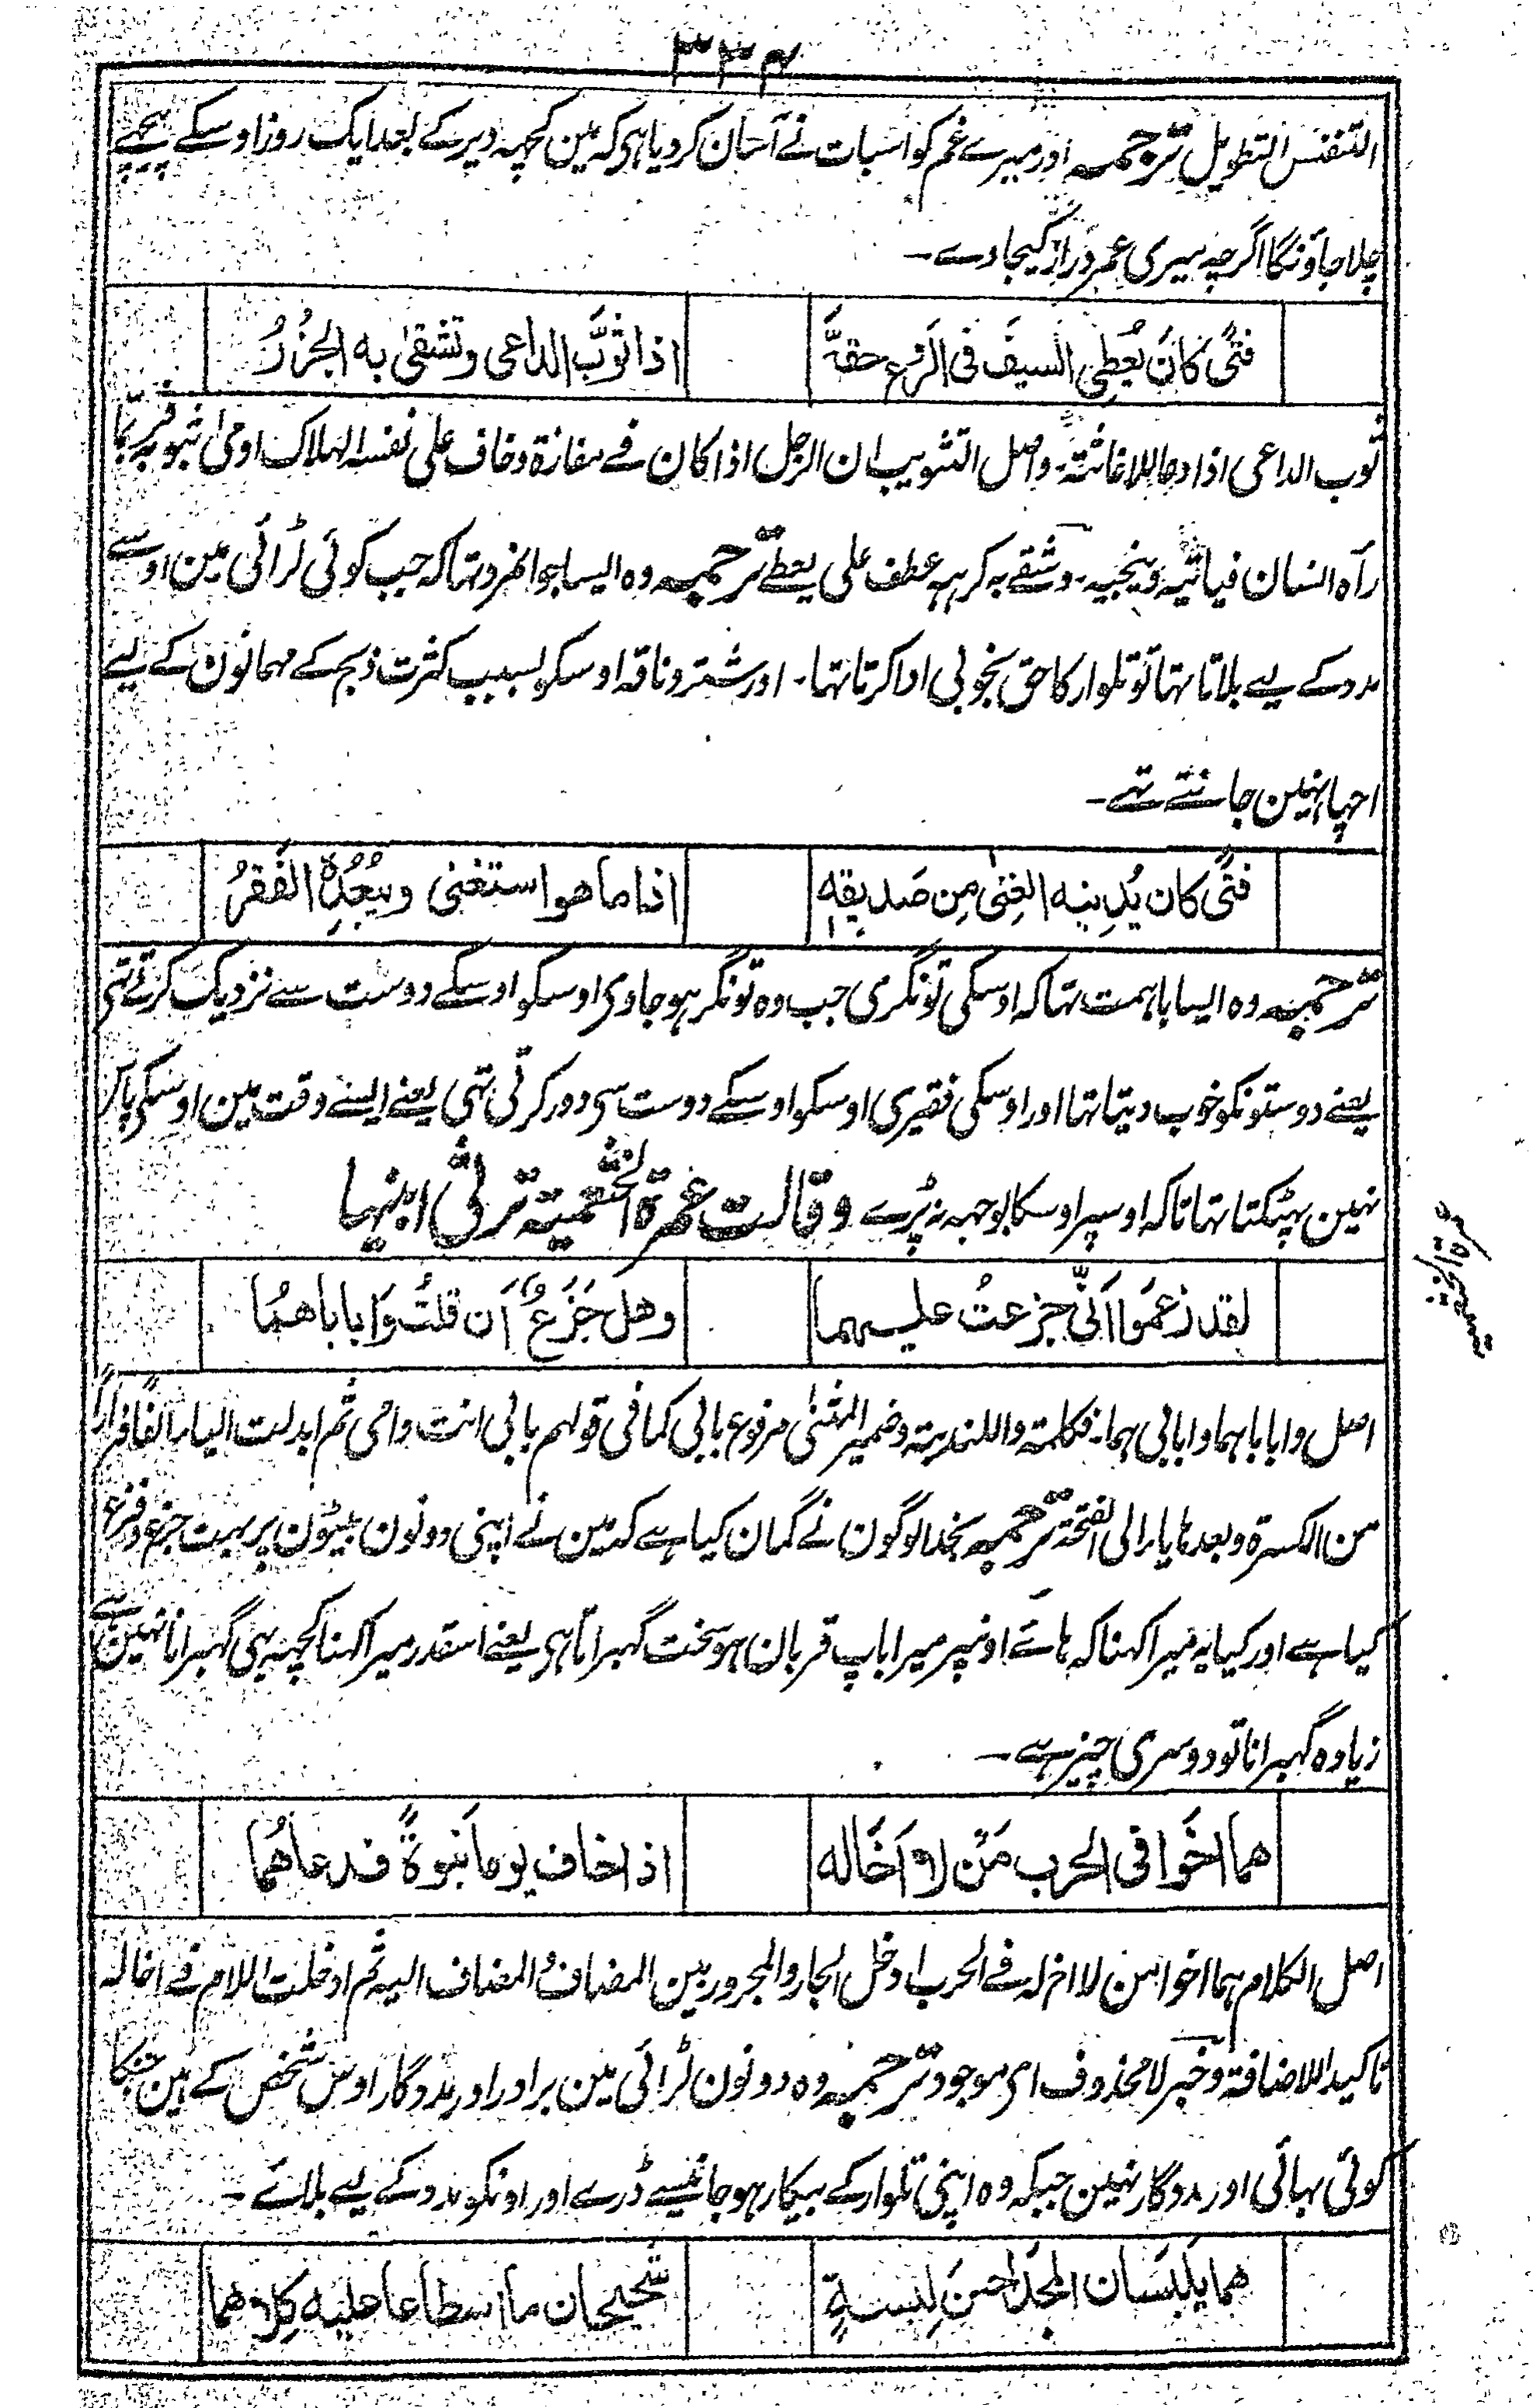 ۳۳۴
التنفس الطویل ترجمہ اور میرے غم کو اسبات نے آسان کردیا ہی کہ مین کچہہ دیر کے بعد ایک روز اوسکے پیچہے
چلا جاؤنگا اگرچہ میری عمر دراز کیجاوے۔
فتًى كانَ يُعطِى السيفَ فى الرَوعِ حقَّهٗ
اذا ثوَّبَ الداعى وتشقىٰ به الجزُرُ
ثوب الداعی اذا دعا للاغاثتہ۔ واصل التثویب ان الرجل اذا کان فے مفازۃ وخاف علی نفسہ الہلاک اومٰی بثوبہ فربما
رآہ انسان فیاتیہ وینجیہ۔ وتشقے بہ عطف علی یعطے ترجمہ وہ ایسا جوانمرد تہا کہ جب کوئی لڑائی مین اوسے
مدد کے لیے بلاتا تہا تو تلوار کا حق بخوبی ادا کرتا تہا۔ اور شتر وناقہ اوسکو بسبب کثرت ذبح کے مہمانون کے لیے
اچہا نہین جانتے تہے۔
فتًى كان يُدنِيه الغِنىٰ مِن صَديقِهٖ
اذا ما هو استغنىٰ ويُبعِدُهُ الفَقرُ
ترجمہ وہ ایسا باہمت تہا کہ اوسکی تونگری جب وہ تونگر ہوجاوی اوسکو اوسکے دوست سے نزدیک کرتے تہی
یعنے دوستونکو خوب دیتا تہا اور اوسکی فقیری اوسکو اوسکے دوست سی دور کرتی تہی یعنے ایسے وقت مین اوسکی پاس
نہین پہٹکتا تہا تاکہ اوسپر اوسکا بوجہہ نہ پڑے وقالت عمرة الخثعمية ترثى ابنيها
عمرة الخثعمیہ
لقد زعمُوا اَنّى جزعتُ عليهما
وهل جَزَعٌ اَن قلتُ وَابابا هما
اصل وابابا ہما وابابی ہما۔ فکلمتہ وا للندبتہ وضمیر المثنیٰ مرفوع بابی کما فی قولہم بابی انت وامی ثم ابدلت الیاء الفا فراراً
من الکسرۃ وبعدہا یاء الی الفتحۃ ترجمہ بخدا لوگون نے گمان کیا ہے کہ مین نے اپنی دونون بیٹون پر بہت جزع وفزع
کیا ہے اور کیا یہ میرا کہنا کہ ہائے اونپر میرا باپ قربان ہو سخت گہبرانا ہی یعنے اسقدر میرا کہنا کچہہ بہی گہبرانا نہین ہے
زیادہ گہبرانا تو دوسری چیز ہے۔
هما اخَوا فى الحرب مَن لا اَخَا له
اذا خاف يوما نَبوةً فدعاهُما
اصل الکلام ہما اخوا من لا اخ لہ فے الحرب ادخل الجار والمجرور بین المضاف والمضاف الیہ ثم ادخلت اللام فے اخالہ
تاکیدا للاضافۃ وخبر لا محذوف ای موجود ترجمہ وہ دونون لڑائی مین برادر اور مددگار اوس شخص کے ہین جسکا
کوئی بہائی اور مددگار نہین جبکہ وہ اپنی تلوار کے بیکار ہوجانیسے ڈرے اور اونکو مدد کے لیے بلائے۔
هما يلبَسان المجدَ احسنَ لِبسةٍ
شحيحان ما اسطاعا عليه كِلاهما